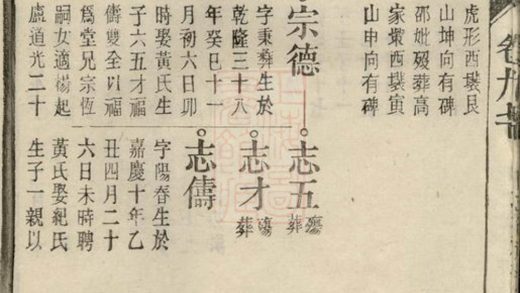 卷九
虎形西塟艮
山坤向有碑
邵妣歿葬高
家墩西塟寅
山申向有碑
宗德
字秉彝生於
乾隆三十八
年癸巳十一
月初六日卯
時娶黃氏生
子六五才福
儔雙全以福
爲堂兄宗恆
嗣女適楊起
廬道光二十
志五 殤葬
志才 殤葬
志儔
字陽春生於
嘉慶十年乙
丑四月二十
六日未時聘
黃氏娶紀氏
生子一親以